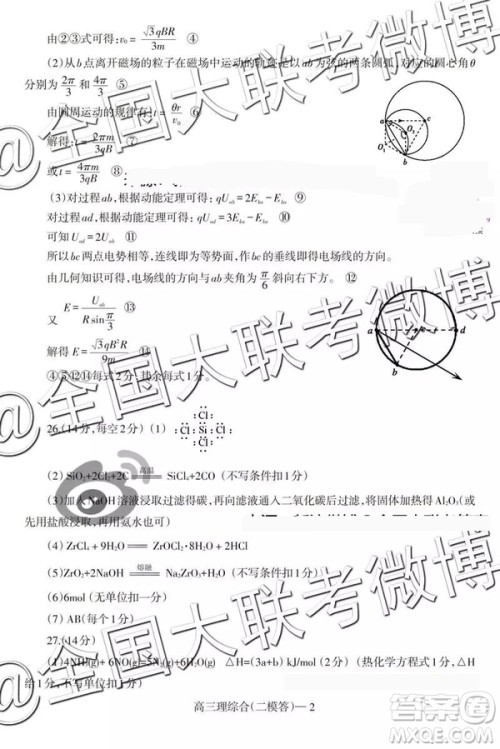 由②③式可得:v₀=√3qBR/3m ④
(2)从b点离开磁场的粒子在磁场中运动的轨迹是以ab为弦的两条圆弧,对应的圆心角θ
分别为2π/3和4π/3 ⑤
由圆周运动的规律有:t=θr/v₀ ⑥
解得:t=2πm/3qB ⑦
或t=4πm/3qB ⑧
(3)对过程ab,根据动能定理可得:qUab=2Eka-Eka ⑨
对过程ad,根据动能定理可得:qUad=3Eka-Eka ⑩
可知Uad=2Uab ⑪
所以bc两点电势相等,连线即为等势面,作bc的垂线即得电场线的方向。
由几何知识可得,电场线的方向与ab夹角为π/6斜向右下方。 ⑫
又 E=Uab/Rsinπ/3 ⑬
解得E=√3qB²R/9m ⑭
④⑤⑫⑭每式2分,其余每式1分。
26.(14分,每空2分)(1)
Cl
Cl Si Cl
Cl
(2)SiO₂+2Cl₂+2C 高温 SiCl₄+2CO (不写条件扣1分)
(3)加入NaOH溶液浸取过滤得碳,再向滤液通入二氧化碳过滤,将固体加热得到Al₂O₃(或
先用盐酸浸取,再用氨水也可)
(4)ZrCl₄+9H₂O ZrOCl₂·8H₂O+2HCl
(5)ZrO₂+2NaOH 熔融 Na₂ZrO₃+H₂O (不写条件扣1分)
(6)6mol (无单位扣一分)
(7)AB(每个1分)
27.(14分)
(1)4NH₃(g)+6NO(g)=5N₂(g)+6H₂O(g) △H=(3a+b) kJ/mol (2分) (热化学方程式1分,△H
给1分,不写单位不得分)
高三理综合(二模答)—2
@全国大联考微博
@全国大联考微博
@全国大联考微博
答案圈